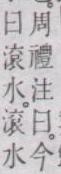 周禮注曰。今
曰滾水。滾水